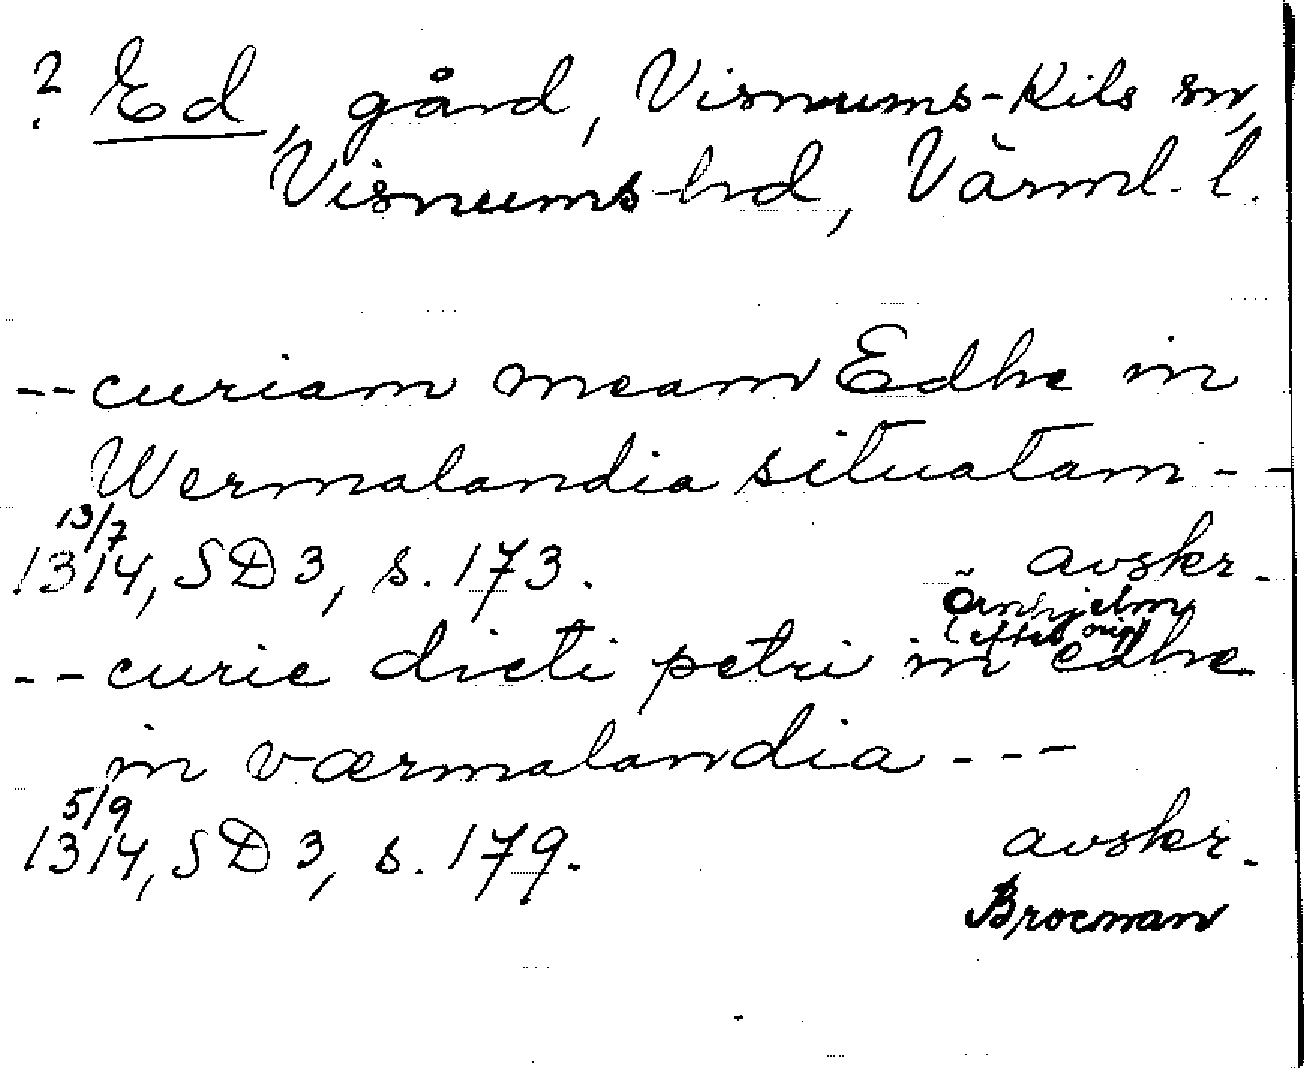 ? Ed, gård, Visnums-Kils sn,
Visnums-hd, Värml. l.
-- curiam meam Edhe in
Wermalandia situatam --
13/7
1314, SD 3, s. 173. avskr.
Örnhjelm
(efter orig)
-- curie dicti petri in edhe
in værmalandia ---
5/9
1314, SD 3, s. 179. avskr.
Brocman